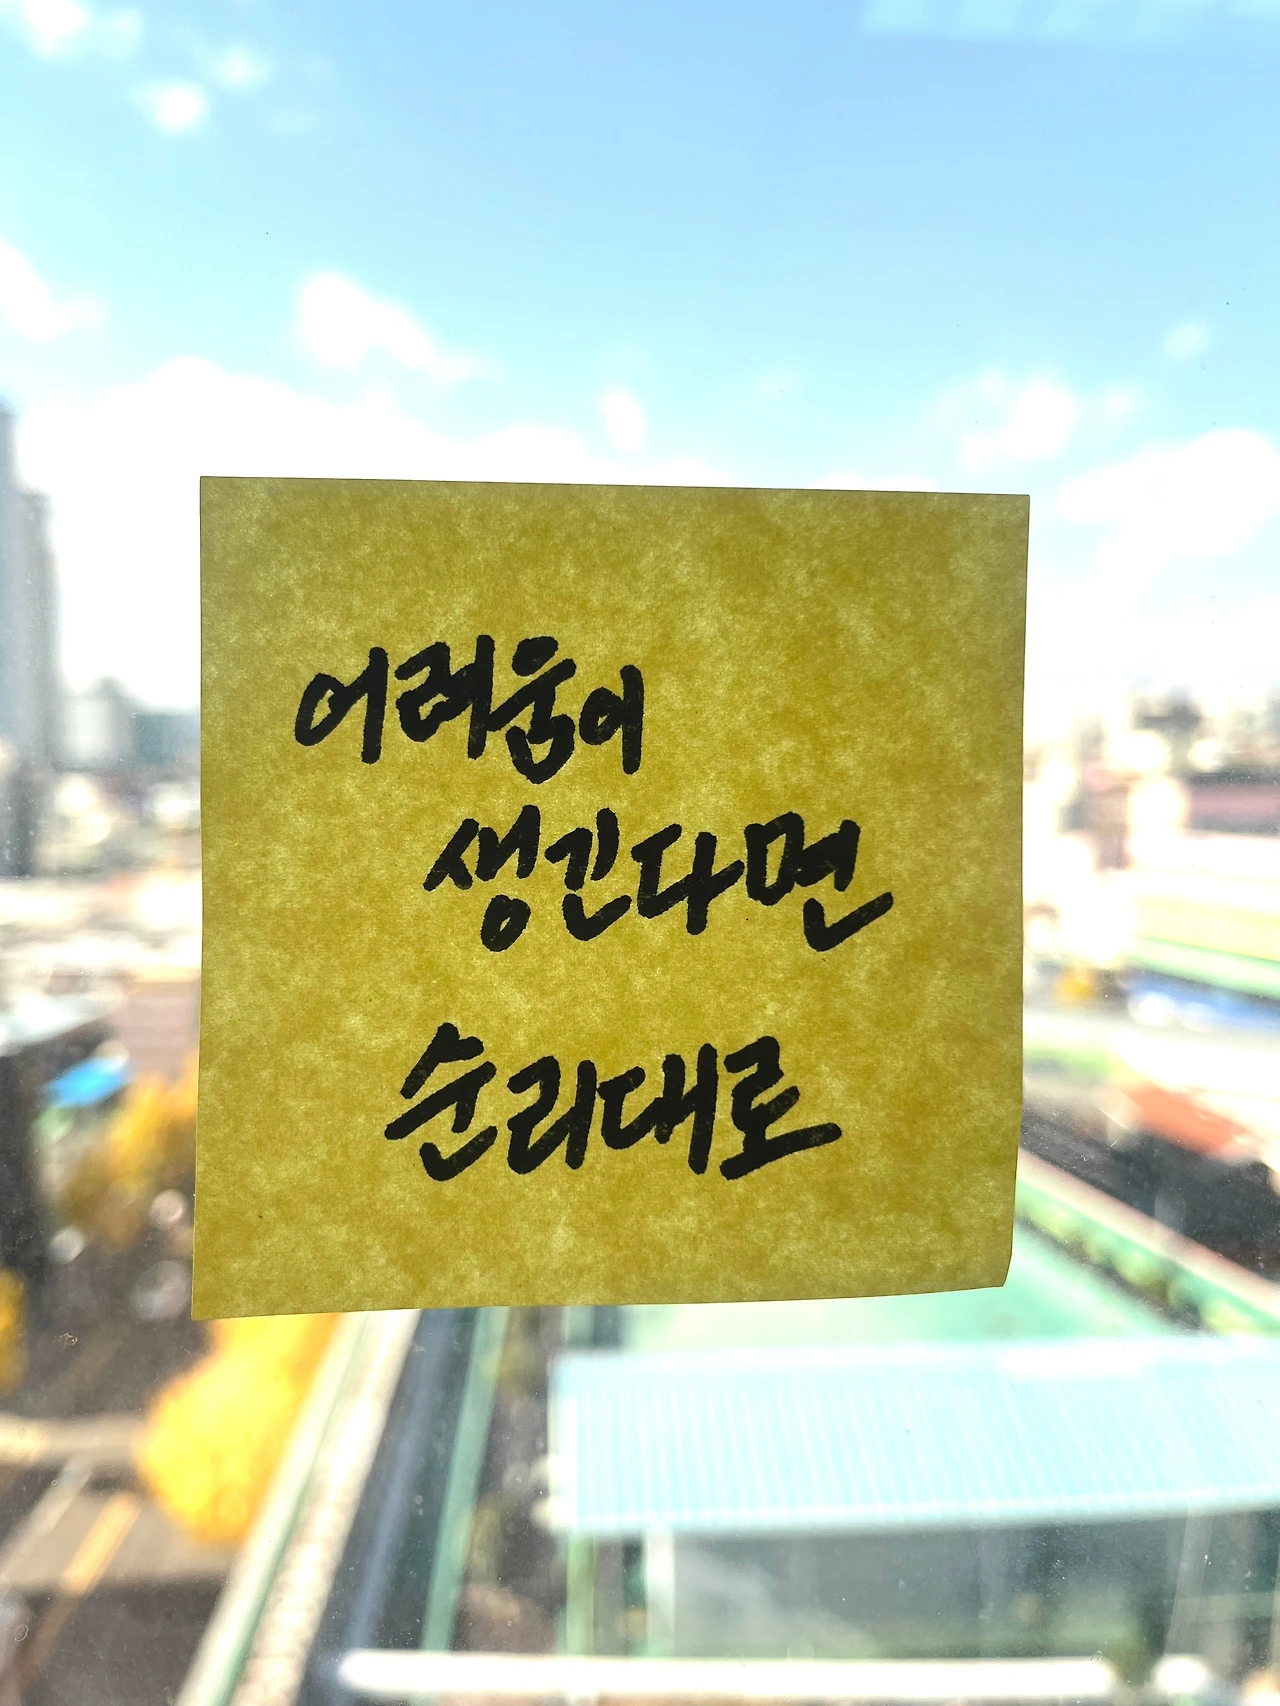 어려움이
생긴다면
순리대로